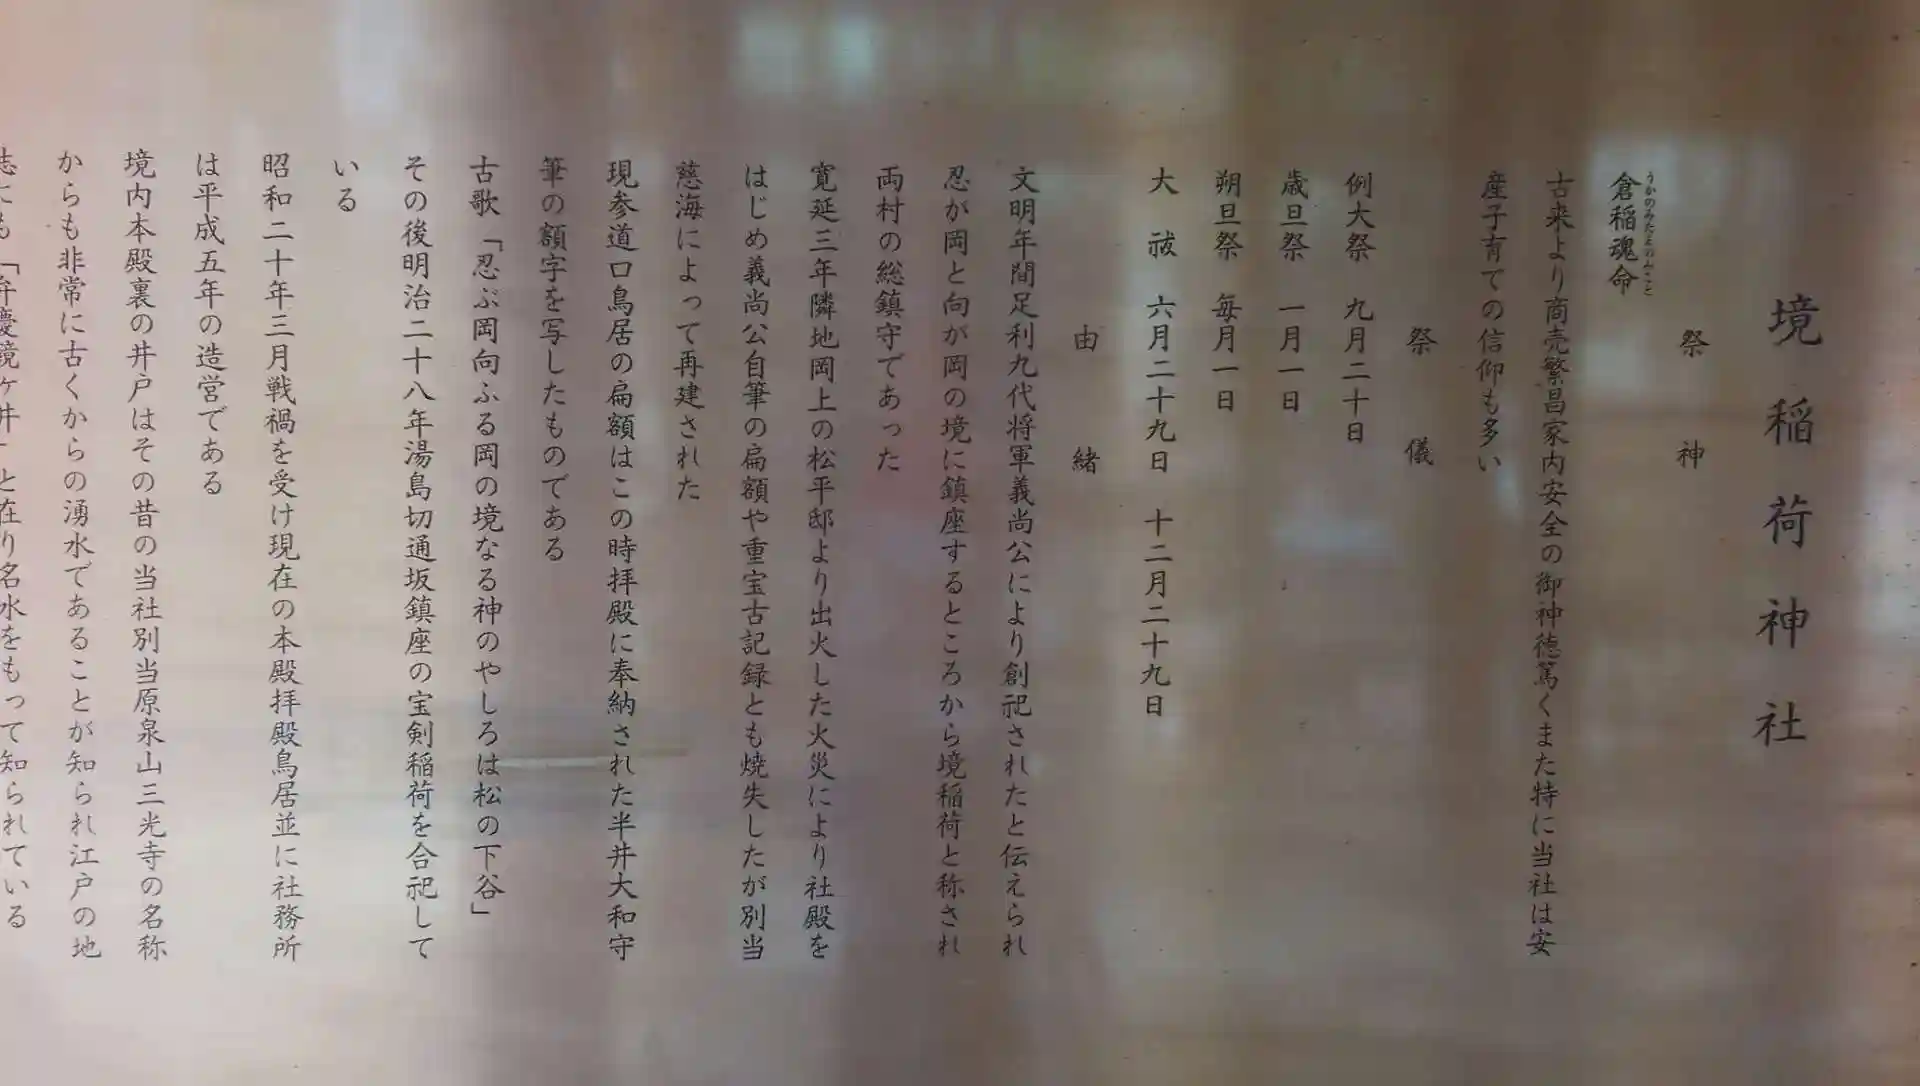 境稲荷神社
祭神
倉稲魂命
うかのみたまのみこと
古来より商売繁昌家内安全の御神徳篤くまた特に当社は安
産子育ての信仰も多い
祭儀
例大祭　九月二十日
歳旦祭　一月一日
朔旦祭　毎月一日
大　祓　六月二十九日　十二月二十九日
由緒
文明年間足利九代将軍義尚公により創祀されたと伝えられ
忍が岡と向が岡の境に鎮座するところから境稲荷と称され
両村の総鎮守であった
寛延三年隣地岡上の松平邸より出火した火災により社殿を
はじめ義尚公自筆の扁額や重宝古記録とも焼失したが別当
慈海によって再建された
現参道口鳥居の扁額はこの時拝殿に奉納された半井大和守
筆の額字を写したものである
古歌「忍ぶ岡向ふる岡の境なる神のやしろは松の下谷」
その後明治二十八年湯島切通坂鎮座の宝剣稲荷を合祀して
いる
昭和二十年三月戦禍を受け現在の本殿拝殿鳥居並に社務所
は平成五年の造営である
境内本殿裏の井戸はその昔の当社別当原泉山三光寺の名称
からも非常に古くからの湧水であることが知られ江戸の地
誌にも「弁慶鏡ヶ井」と在り名水をもって知られている